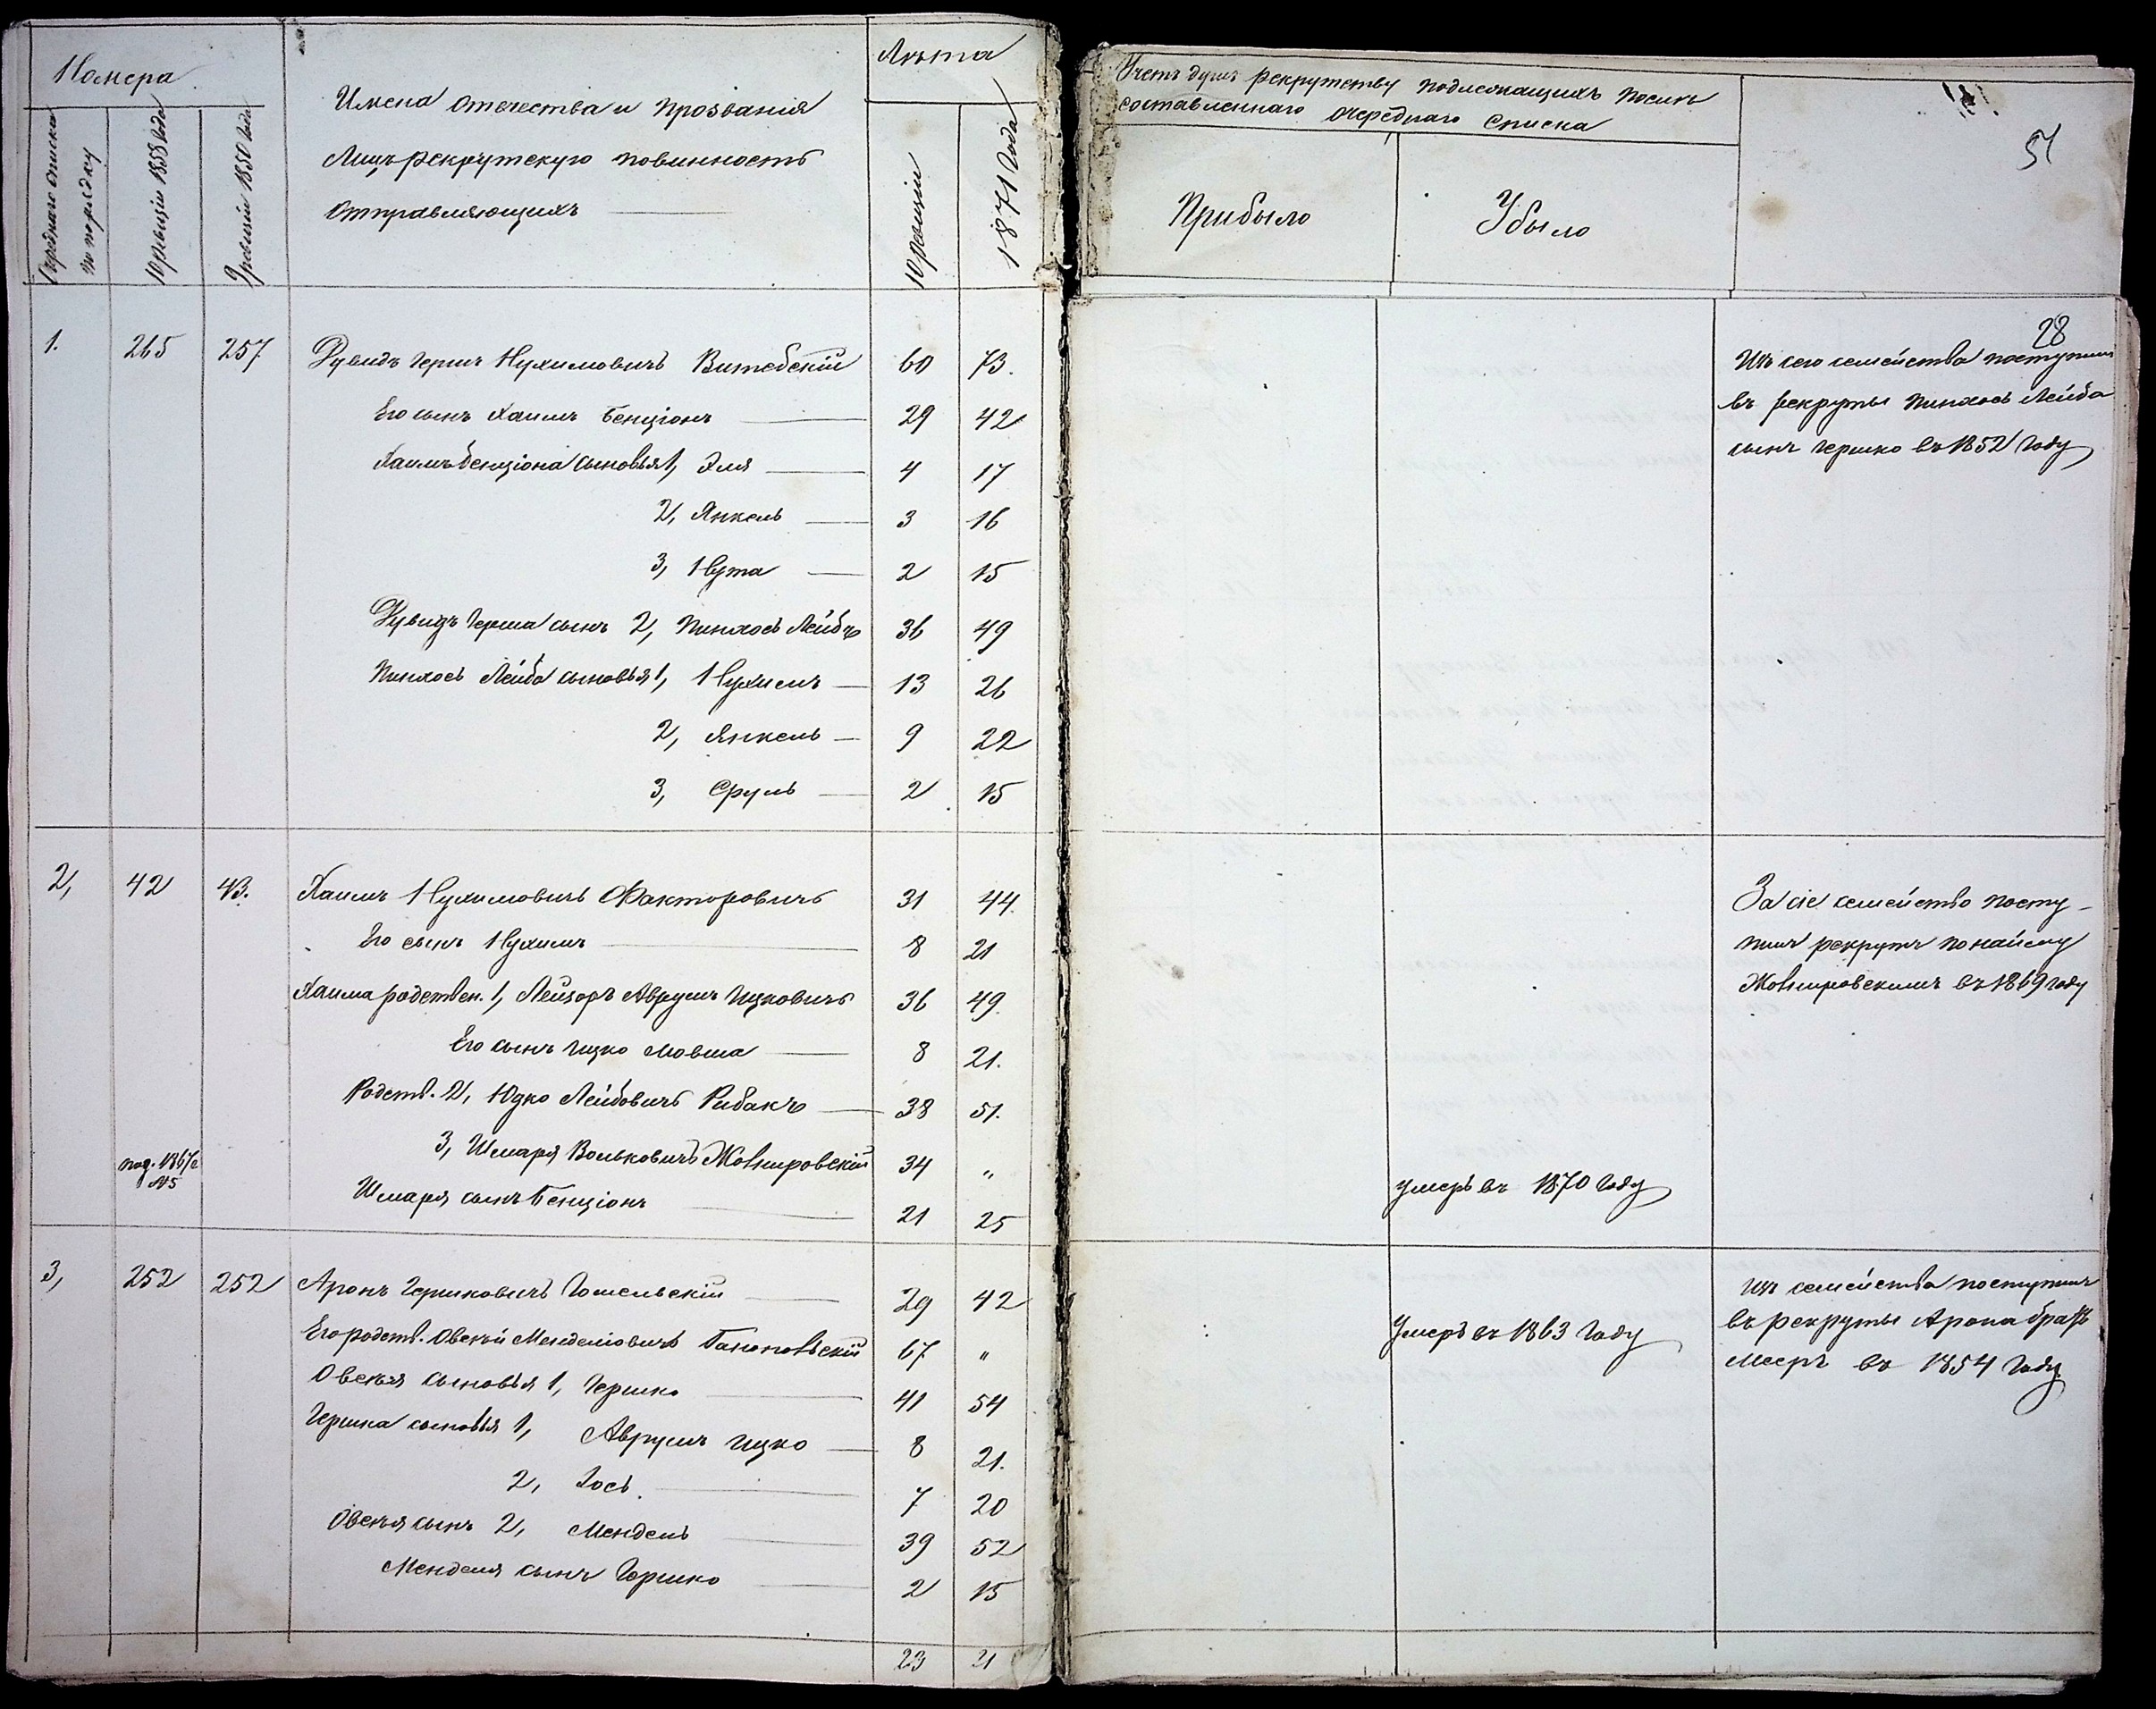 Номера
Очереднаго списка
по порядку
10 ревизіи 1858 Года
9 ревизіи 1850 Года
Имена отечества и прозванія
Лицъ рекрутскую повинность
отправляющихъ
Лѣта
10 ревизіи
1871 Года
Счетъ душъ рекрутству подлежащихъ после
составленнаго очереднаго списка
Прибыло
Убыло
51
28
1. 265 257 Рувидъ Гершъ Нухимовичъ Витебскій 60 73.
Его сынъ Хаимъ Бенціонъ 29 42
Хаимъ Бенціона сыновья 1, Эля 4 17
2, Янкель 3 16
3, Нута 2 15
Рувидъ Герша сынъ 2, Пинхось Лейбъ 36 49
Пинхось Лейба сыновья 1, Нухимъ 13 26
2, Янкель 9 22
3, Сруль 2 15
Изъ сего семейства поступилъ
въ рекруты Пинхось Лейба
сынъ Гершко въ 1852 Году
2, 42 43. Хаимъ Нухимовичъ Факторовичъ 31 44.
Его сынъ Нухимъ 8 21
Хаима родствен. 1, Лейзоръ Аврумъ Ицковичъ 36 49.
Его сынъ Ицко Мовша 8 21.
Родств. 2, Юдко Лейбовичъ Рибакъ 38 51.
3, Шмаря Вольковичъ Жовнировскій 34 "
под. 1867 г
№5
Шмаря сынъ Бенціонъ 21 25
умеръ въ 1870 Году
За сіе семейство посту-
пилъ рекрутъ по найму
Жовнировскимъ въ 1869 году
3, 252 252 Аронъ Гершковичъ Гомельскій 29 42
Его родств. Овсѣй Менделіовичъ 67 "
Овсѣя сыновья 1, Гершко 41 54
Гершка сыновья 1, Аврумъ Ицко 8 21.
2, Іось 7 20
Овсѣя сынъ 2, Мендель 39 52
Менделя сынъ Гершко 2 15
Умеръ въ 1863 Году
Изъ семейства поступилъ
въ рекруты Арона братъ
Мееръ въ 1854 Году.
23 21